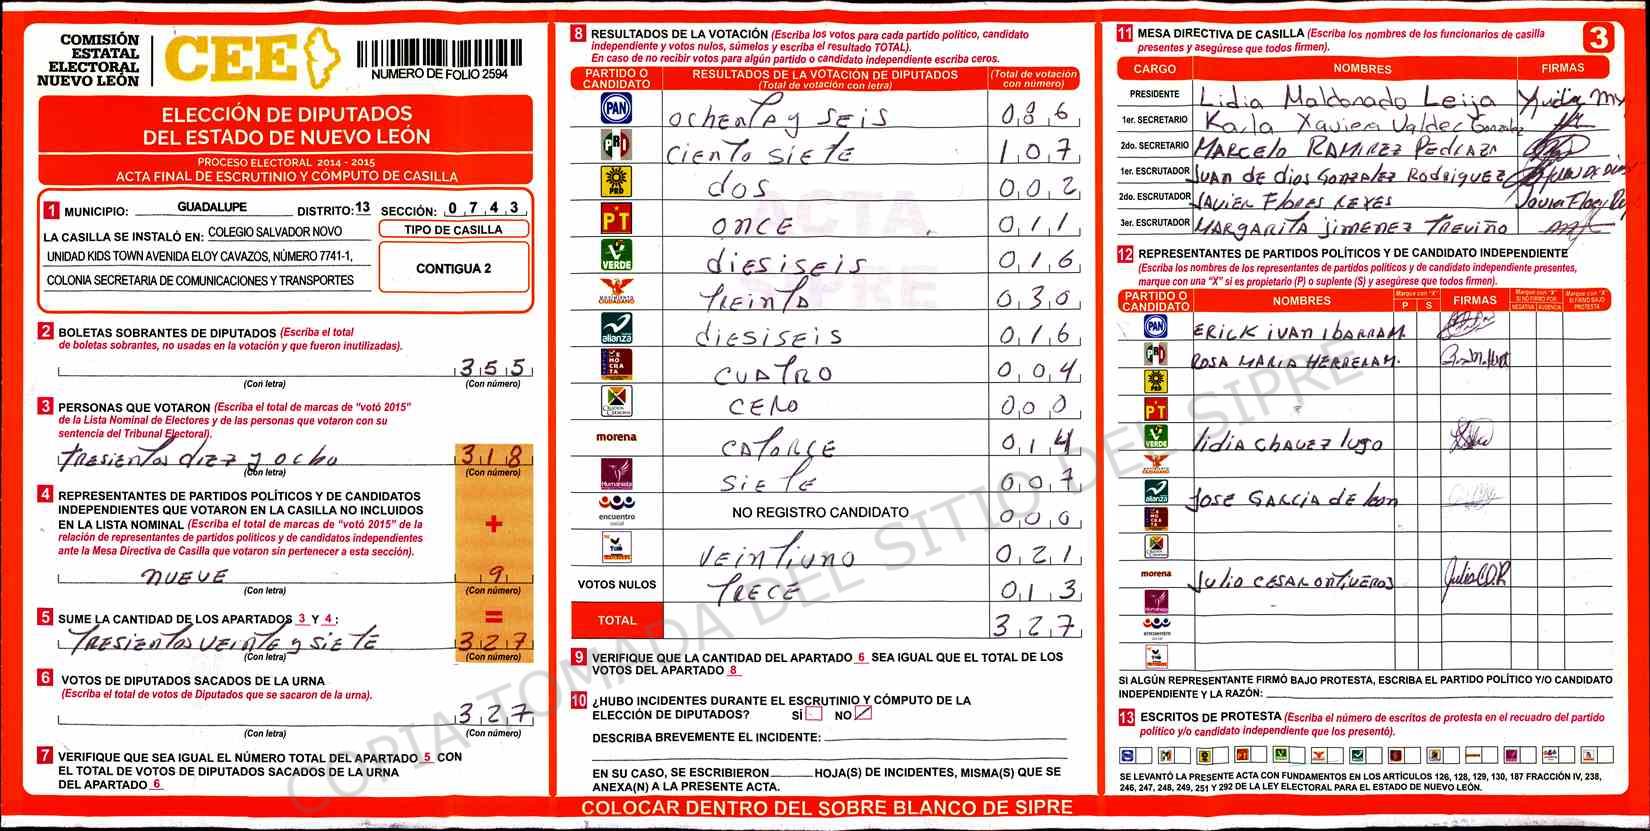 COMISIÓN
ESTATAL
ELECTORAL
NUEVO LEÓN
CEE
NUMERO DE FOLIO 2594
ELECCIÓN DE DIPUTADOS
DEL ESTADO DE NUEVO LEÓN
PROCESO ELECTORAL 2014 - 2015
ACTA FINAL DE ESCRUTINIO Y CÓMPUTO DE CASILLA
1 MUNICIPIO: GUADALUPE DISTRITO: 13 SECCIÓN: 0 7 4 3
LA CASILLA SE INSTALÓ EN: COLEGIO SALVADOR NOVO
UNIDAD KIDS TOWN AVENIDA ELOY CAVAZOS, NÚMERO 7741-1,
COLONIA SECRETARIA DE COMUNICACIONES Y TRANSPORTES
TIPO DE CASILLA
CONTIGUA 2
2 BOLETAS SOBRANTES DE DIPUTADOS (Escriba el total
de boletas sobrantes, no usadas en la votación y que fueron inutilizadas).
355
(Con letra) (Con número)
3 PERSONAS QUE VOTARON (Escriba el total de marcas de "votó 2015"
de la Lista Nominal de Electores y de las personas que votaron con su
sentencia del Tribunal Electoral).
TRESIENTOS DIEZ Y OCHO 318
(Con letra) (Con número)
4 REPRESENTANTES DE PARTIDOS POLÍTICOS Y DE CANDIDATOS
INDEPENDIENTES QUE VOTARON EN LA CASILLA NO INCLUIDOS
EN LA LISTA NOMINAL (Escriba el total de marcas de "votó 2015" de la
relación de representantes de partidos políticos y de candidatos independientes
ante la Mesa Directiva de Casilla que votaron sin pertenecer a esta sección).
+
NUEVE 9
(Con letra) (Con número)
5 SUME LA CANTIDAD DE LOS APARTADOS 3 Y 4 : =
TRESIENTOS VEINTE y SIETE 327
(Con letra) (Con número)
6 VOTOS DE DIPUTADOS SACADOS DE LA URNA
(Escriba el total de votos de Diputados que se sacaron de la urna).
327
(Con letra) (Con número)
7 VERIFIQUE QUE SEA IGUAL EL NÚMERO TOTAL DEL APARTADO 5 CON
EL TOTAL DE VOTOS DE DIPUTADOS SACADOS DE LA URNA
DEL APARTADO 6
8 RESULTADOS DE LA VOTACIÓN (Escriba los votos para cada partido político, candidato
independiente y votos nulos, súmelos y escriba el resultado TOTAL).
En caso de no recibir votos para algún partido o candidato independiente escriba ceros.
PARTIDO O CANDIDATO RESULTADOS DE LA VOTACIÓN DE DIPUTADOS (Total de votación con letra) (Total de votación con número)
PAN OCHENTA y SEIS 086
PRI CIENTO SIETE 107
PRD DOS 002
PT ONCE 011
VERDE DIESISEIS 016
TREINTA 030
alianza DIESISEIS 016
CUATRO 004
CERO 000
morena CATORCE 014
Humanista SIETE 007
encuentro social NO REGISTRO CANDIDATO 000
VEINTIUNO 021
VOTOS NULOS TRECE 013
TOTAL 327
ACTA
SIPRE
9 VERIFIQUE QUE LA CANTIDAD DEL APARTADO 6 SEA IGUAL QUE EL TOTAL DE LOS
VOTOS DEL APARTADO 8
10 ¿HUBO INCIDENTES DURANTE EL ESCRUTINIO Y CÓMPUTO DE LA
ELECCIÓN DE DIPUTADOS? SÍ NO
DESCRIBA BREVEMENTE EL INCIDENTE:
EN SU CASO, SE ESCRIBIERON HOJA(S) DE INCIDENTES, MISMA(S) QUE SE
ANEXA(N) A LA PRESENTE ACTA.
COLOCAR DENTRO DEL SOBRE BLANCO DE SIPRE
COPIA TOMADA DEL SITIO DEL SIPRE
11 MESA DIRECTIVA DE CASILLA (Escriba los nombres de los funcionarios de casilla
presentes y asegúrese que todos firmen).
3
CARGO NOMBRES FIRMAS
PRESIDENTE Lidia Maldonado Leija
1er. SECRETARIO Karla Xaviera Valdez Gonzalez
2do. SECRETARIO MARCELO RAMIREZ PEDRAZA
1er. ESCRUTADOR JUAN DE DIOS GONZALEZ RODRIGUEZ
2do. ESCRUTADOR JAVIER FLORES REYES
3er. ESCRUTADOR MARGARITA JIMENEZ TREVIÑO
12 REPRESENTANTES DE PARTIDOS POLÍTICOS Y DE CANDIDATO INDEPENDIENTE
(Escriba los nombres de los representantes de partidos políticos y de candidato independiente presentes,
marque con una "X" si es propietario (P) o suplente (S) y asegúrese que todos firmen).
PARTIDO O CANDIDATO NOMBRES Marque con "X" P S FIRMAS Marque con "X" SI NO FIRMÓ POR NEGATIVA AUSENCIA Marque con "X" SI FIRMÓ BAJO PROTESTA
PAN ERICK IVAN IBARRA M.
PRI ROSA MARIA HERRERA M.
PRD
PT
VERDE LIDIA CHAVEZ LUGO
alianza JOSE GARCIA DE LEON
morena JULIO CESAR ONTIVEROS
Humanista
encuentro social
SI ALGÚN REPRESENTANTE FIRMÓ BAJO PROTESTA, ESCRIBA EL PARTIDO POLÍTICO Y/O CANDIDATO
INDEPENDIENTE Y LA RAZÓN:
13 ESCRITOS DE PROTESTA (Escriba el número de escritos de protesta en el recuadro del partido
político y/o candidato independiente que los presentó).
SE LEVANTÓ LA PRESENTE ACTA CON FUNDAMENTOS EN LOS ARTÍCULOS 126, 128, 129, 130, 187 FRACCIÓN IV, 238,
246, 247, 248, 249, 251 Y 292 DE LA LEY ELECTORAL PARA EL ESTADO DE NUEVO LEÓN.